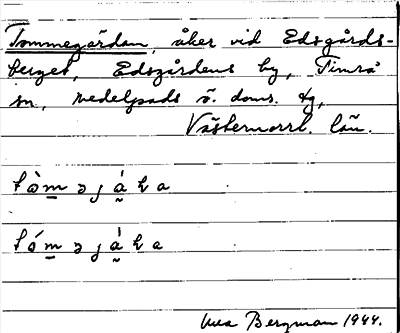 Tommegärdan, åker vid Edsgårds-
berget, Edsgårdens by, Timrå
sn, Medelpads ö. doms. tg,
Västernorrl. län.
tòm̲ə ȷ á̰ ɫ a
tóm̲ə ȷ à̰ ɫ a
Bergman 1944.